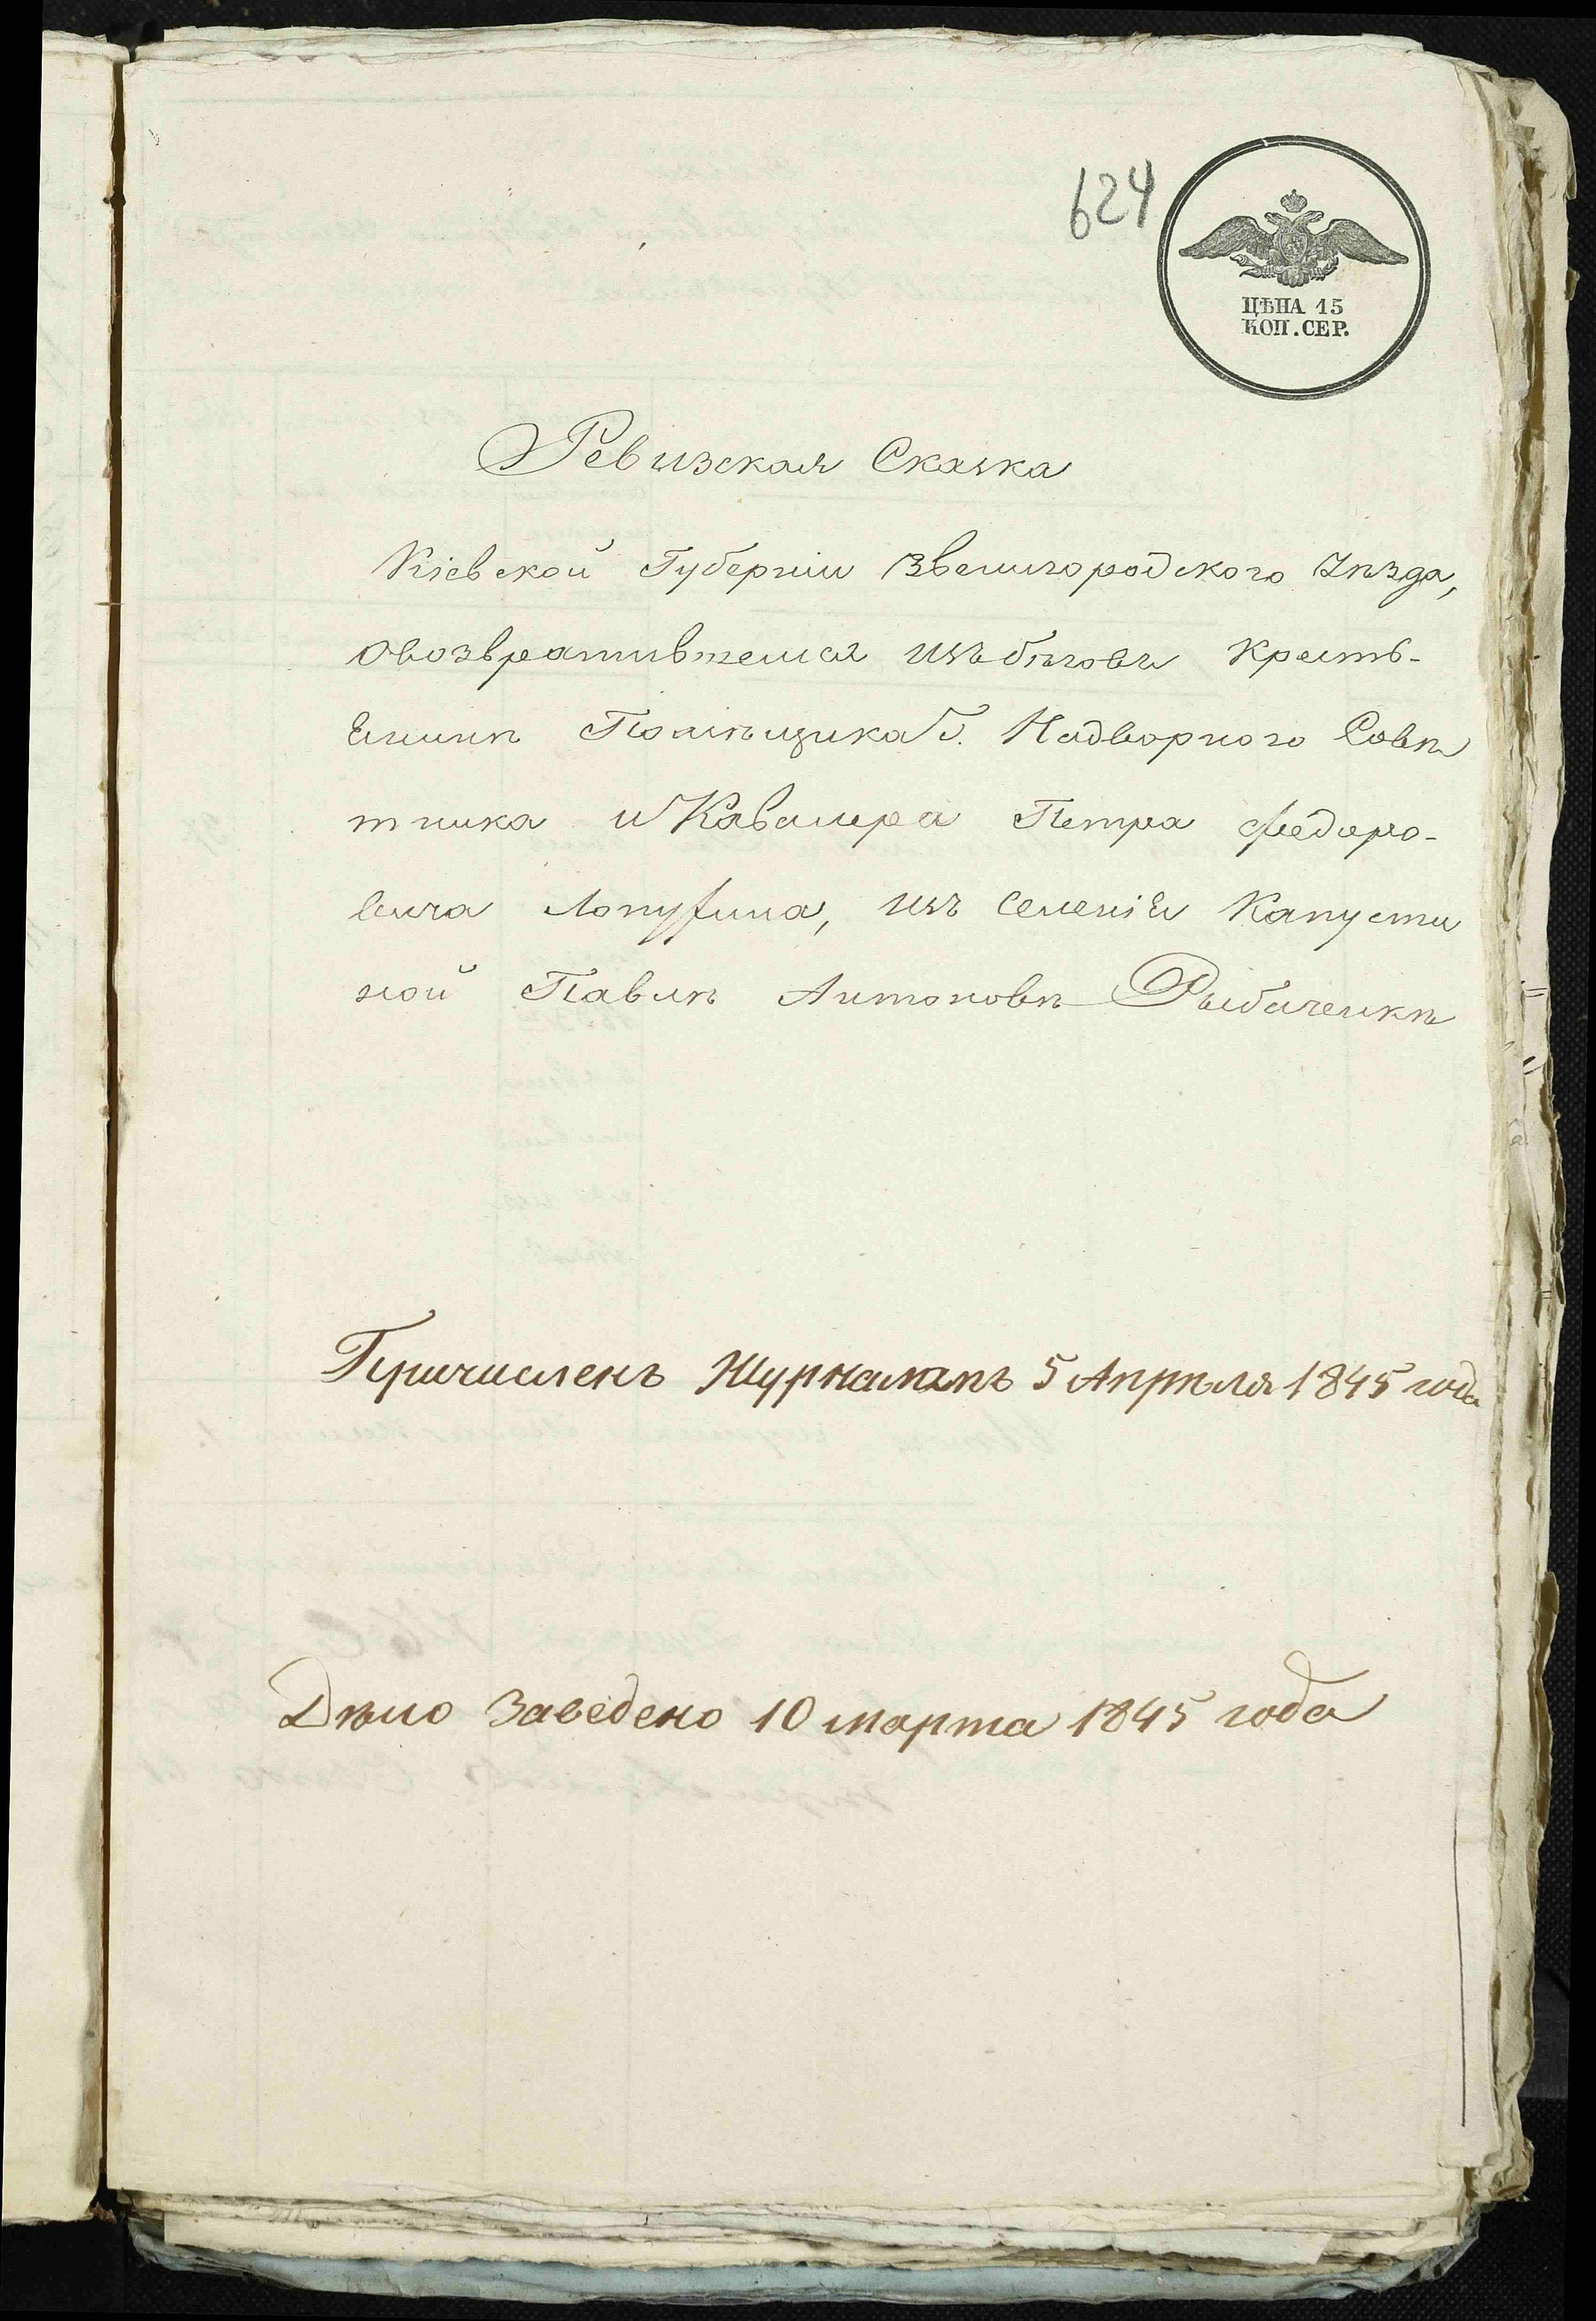 624
ЦѢНА 15
КОП. СЕР.
Ревизская Сказка
Кіевской Губерніи Звенигородского Уѣзда,
овозвратившемся изъ бѣговъ кресть-
Енинѣ Помѣщика Г. Надворного Совѣ
тника и Кавалера Петра Федоро-
вича Лопухина, изъ селеніЕ Капусти
ной Павлѣ Антоновѣ Рыбаченкѣ
Причисленъ Журналомъ 5 Апрѣля 1845 года
Дѣло Заведено 10 марта 1845 года